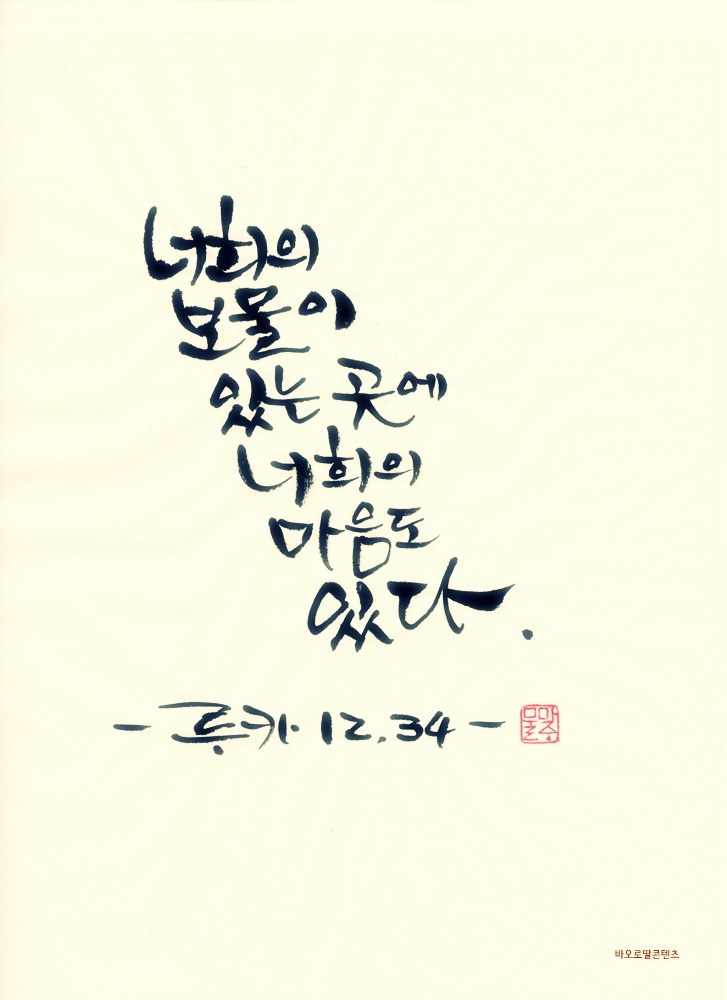 너희의
보물이
있는 곳에
너희의
마음도
있다.
- 루카 12.34 -
바오로딸콘텐츠